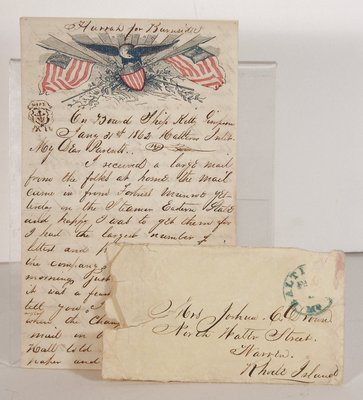 Hurrah for Burnside
On Board Ship Kitty Simpson
Jany 31st 1862 Hatteras Inlet
My Dear Parents.
I received a large mail
from the folks at home the mail
came in from Fortress Monroe
in the Steamer Eastern State
and happy I was to get them for
I had the largest number of
letters and
the company
morning just
it was a
tell you
when the
mail in
Hall told
paper and
BALTI
MD
Mrs Joshua C.
North Water Street.
Warren.
Rhode Island